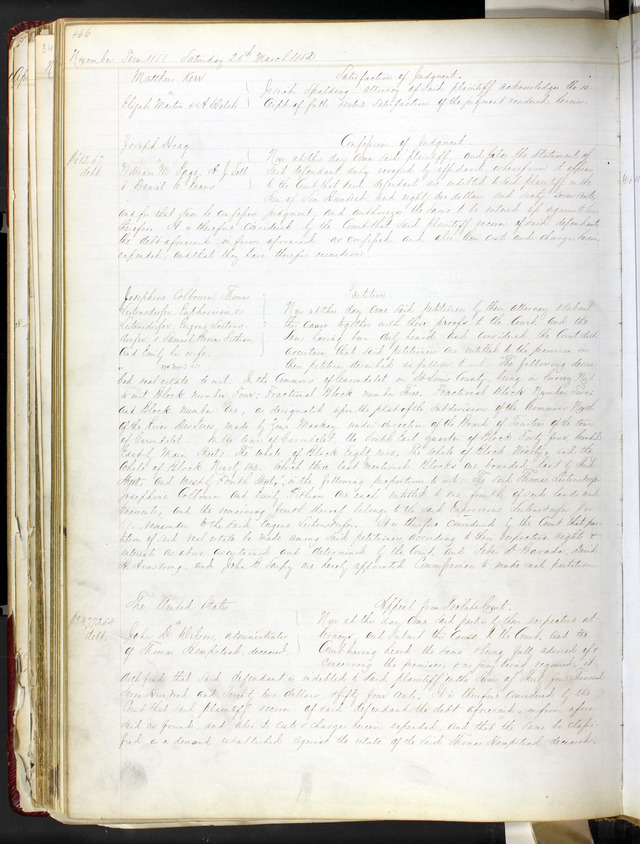 466
November Term 1851 Saturday 20th March 1852
Matthew Kerr
Satisfaction of Judgment.
vs
Josiah Spalding attorney of said plaintiff acknowledges the re-
Elijah Martin & A Welch
ceipt of full satisfaction of the judgment rendered herein.
Joseph Hoag
Confession of Judgment
$682.67
debt
vs
Now at this day came said plaintiff, and files the statement of
William W. A. J.
said defendant duly verified by affidavit, wherefrom it appears
& Daniel C.
to the Court that said defendants are indebted to said plaintiff in the
sum of Six Hundred and eighty two dollars and sixty seven cents
and for that sum he confesses judgment, and authorizes the same to be entered up against
therefor. It is therefore considered by the Court that said plaintiff recover of said defendants
the debt aforesaid in form aforesaid so confessed and also their costs and charges herein
expended, and that they have therefor execution.
Josephine Colburn, Thomas
Partition
Leitensdorfer, Euphrosine
Now at this day come said petitioners by their attorney & submit
Leitensdorfer, Eugene Leitens-
the cause together with their proofs to the Court, and the
dorfer, &
same having been duly heard and considered the Court doth
and Emily his wife
ascertain that said Petitioners are entitled to the premises in
their petition described as follows to wit: The following descri-
bed real estate to wit. In the Commons of Carondelet in St Louis County, being in Survey No 1
to wit Block number Four; Fractional Block number Five. Fractional Block Number
and Block number One, as designated upon the plat of the subdivision of the Common North
of the River Des Peres, made by Zeno Mackay under direction of the Board of Trustees of the town
of Carondelet. In the town of Carondelet, the South East quarter of Block Forty four, bounded
East by Main Street; the whole of Block Eighty one; the whole of Block Ninety, and the
whole of Block Ninety one, which three last mentioned Blocks are bounded East by Third
Street, and West by Fourth Street, in the following proportions to wit: The said Thomas Leitensdorfer
Josephine Colburn and Emily are each entitled to one fourth of said lands and
tenements, and the remaining fourth thereof belongs to the said Euphrosine Leitensdorfer for
remainder to the said Eugene Leitensdorfer. It is therefore considered by the Court that par-
tition of said real estate be made among said petitioners according to their respective rights &
interest as above ascertained and determined by the Court and John David
Armstrong, and John B. Sarpy are hereby appointed Commissioners to make such partition
The United States
Appeal from Probate Court.
debt
vs
Now at this day come said parties by their respective at-
John D. Wilson, administrator
torneys, and submit the cause to the Court, and the
of Thomas Hempstead, deceased
Court having heard the same & being fully advised of &
concerning the premises,
doth find that said defendant is indebted to said plaintiff in the sum of thousand
seven hundred and seventy two dollars & fifty four cents. It is therefore considered by the
Court that said plaintiff recover of said defendant the debt aforesaid, in form afore-
said so found, and also its costs & charges herein expended, and that the same be classi-
fied as a demand established against the estate of the said Thomas Hempstead deceased.